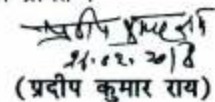 प्रदीप कुमार राय
21.02.2018
(प्रदीप कुमार राय)